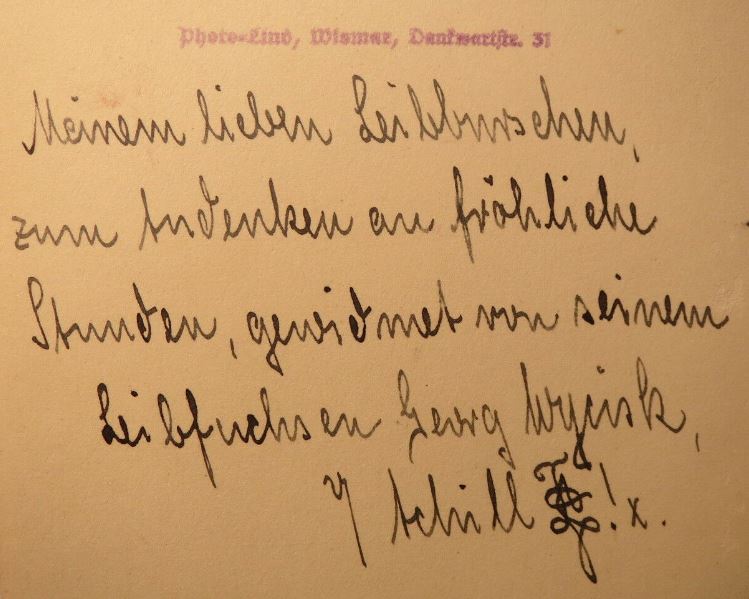 Photo-Lind, Wismar, Dankwartstr. 31
Meinem lieben Leibburschen,
zum Andenken an fröhliche
Stunden, gewidmet von seinem
Leibfuchsen Georg
Schill ! x.